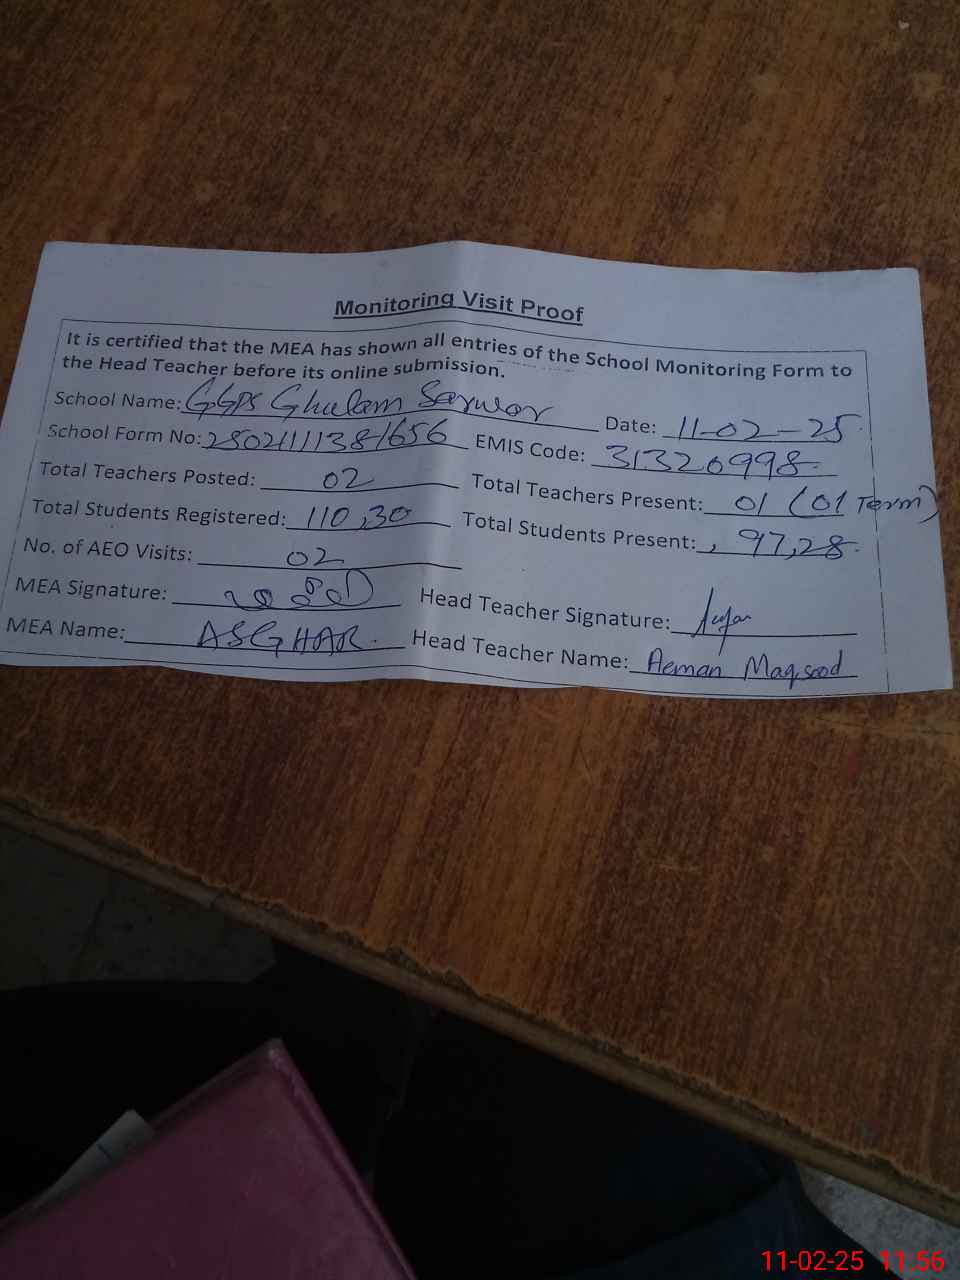 Monitoring Visit Proof
It is certified that the MEA has shown all entries of the School Monitoring Form to
the Head Teacher before its online submission.
School Name: GGPS Ghulam Sarwar Date: 11-02-25
School Form No: 2502111381656 EMIS Code: 31320998
Total Teachers Posted: 02 Total Teachers Present: 01 (01 Term)
Total Students Registered: 110,30 Total Students Present: , 97,28
No. of AEO Visits: 02
MEA Signature: Head Teacher Signature:
MEA Name: ASGHAR Head Teacher Name: Aeman Maqsood
11-02-25 11:56